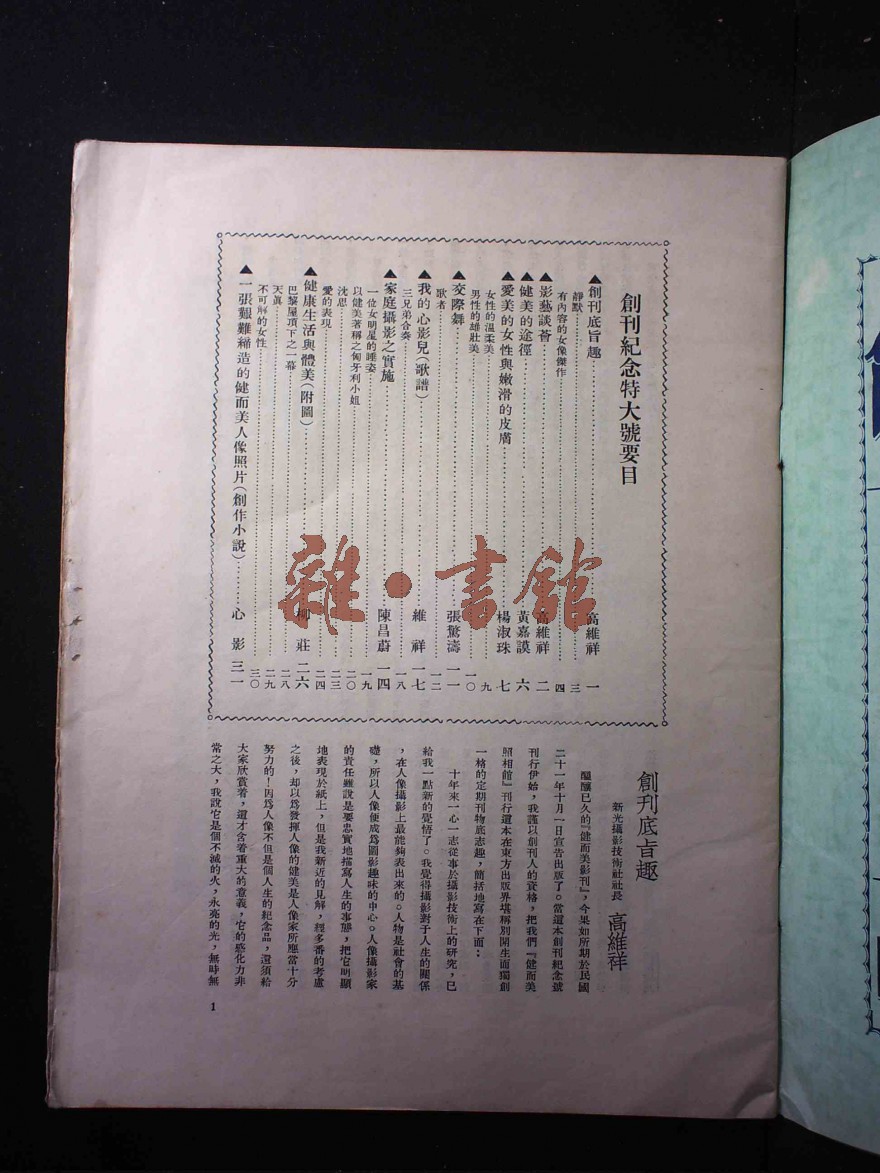 創刊紀念特大號要目
▲創刊底旨趣……高維祥 一
靜默……三
有內容的女像傑作……四
▲影藝談薈……高維祥 二
▲健美的途徑……黃嘉謨 六
▲愛美的女性與嫩滑的皮膚……楊淑珠 七
女性的溫柔美……九
男性的雄壯美……一〇
▲交際舞……張驚濤 一一
歌者……一二
▲我的心影兒(歌譜)……維祥 一七
三兄弟合奏……一八
▲家庭攝影之實施……陳昌蔚 一四
一位女明星的睡姿……一九
以健美著稱之匈牙利小姐……二〇
沈思……二三
愛的表現……二四
▲健康生活與體美(附圖)……柳莊 二六
巴黎屋頂下之一幕……二八
天眞……二九
不可解的女性……三〇
▲一張艱難締造的健而美人像照片(創作小說)……心影 三一
創刊底旨趣
新光攝影技術社社長 高維祥
醞釀已久的『健而美影刊』,今果如所期於民國
二十一年十月一日宣告出版了。當這本創刊紀念號
刊行伊始,我謹以創刊人的資格,把我們『健而美
照相館』刊行這本在東方出版界堪稱別開生面獨創
一格的定期刊物底志趣,簡括地寫在下面:
十年來一心一志從事於攝影技術上的研究,已
給我一點新的覺悟了。我覺得攝影對于人生的關係
,在人像攝影上最能夠表出來的。人物是社會的基
礎,所以人像便成爲圖影趣味的中心。人像攝影家
的責任雖說是要忠實地描寫人生的事態,把它明顯
地表現於紙上,但是我新近的見解,經多番的考慮
之後,却以爲發揮人像的健美是人像家所應當十分
努力的!因爲人像不但是個人生的紀念品,還須給
大家欣賞着,這才含着重大的意義,它的感化力非
常之大,我說它是個不滅的火,永亮的光,無時無
1
雜·書館